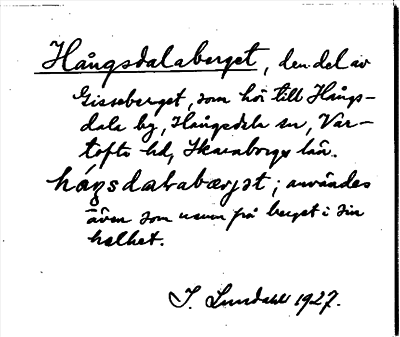 Hångsdalaberget, den del av
Gisseberget, som hör till Hångs-
dala by, Hångsdala sn, Var-
tofts hd, Skaraborgs län.
hågsdalabærjet; användes
även som namn på berget i sin
helhet.
I. Lundahl 1927.